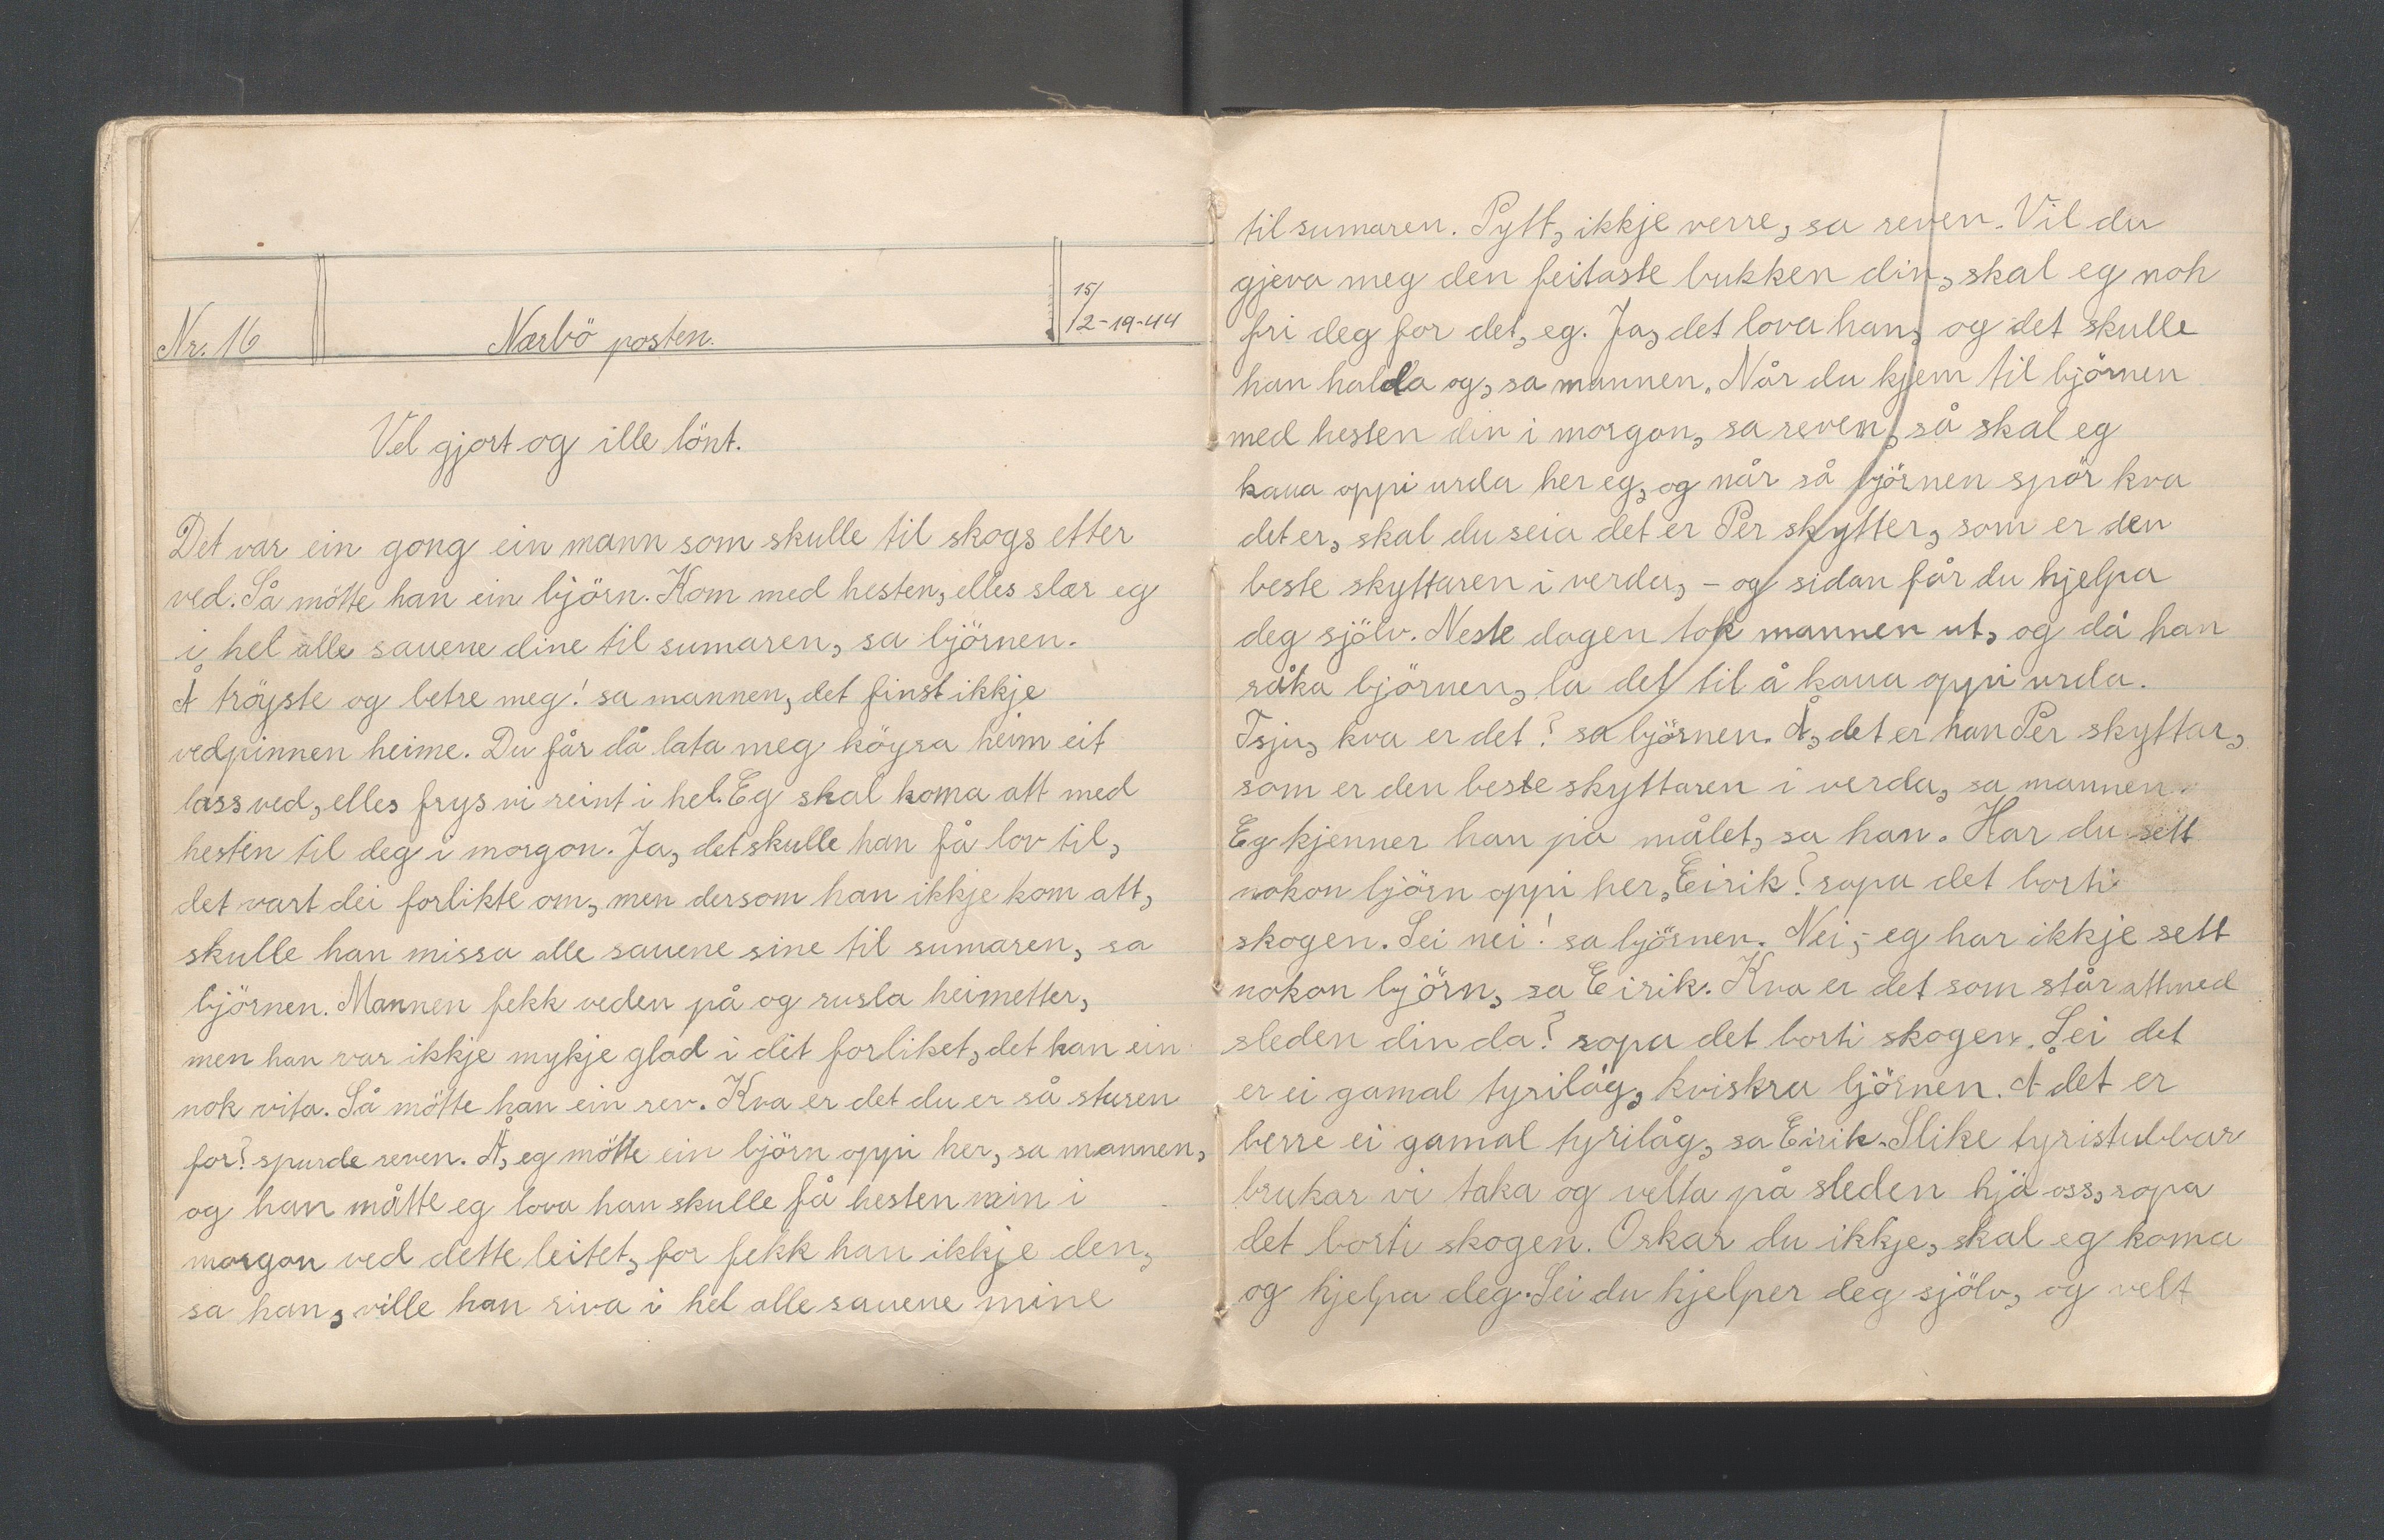 Nr. 16
Nærbö posten.
15/2-19-44
Vel gjort og ille lönt.
Det var ein gong ein mann som skulle til skogs etter
ved. Så mötte han ein björn. Kom med hesten, elles slær eg
i hel alle sauene dine til sumaren, sa björnen.
Å tröyste og betre meg! sa mannen, det finst ikkje
vedpinnen heime. Du får då lata meg köyra heim eit
lass ved, elles frys vi reint i hel. Eg skal koma att med
hesten til deg i morgon. Ja, det skulle han få lov til,
det vart dei forlikte om, men dersom han ikkje kom att,
skulle han missa alle sauene sine til sumaren, sa
björnen. Mannen fekk veden på og rusla heimetter,
men han var ikkje mykje glad i dit forliket, det kan ein
nok vita. Så mötte han ein rev. Kva er det du er så sturen
for? spurde reven. Å, eg mötte ein björn oppi her, sa mannen,
og han måtte eg lova han skulle få hesten min i
morgon ved dette leitet, for fekk han ikkje den,
sa han, ville han riva i hel alle sauene mine
til sumaren. Pytt, ikkje verre, sa reven. Vil du
gjeva meg den feitaste bukken din, skal eg noh
fri deg for det, eg. Ja, det lova han, og det skulle
han halda og, sa mannen. Når du kjem til björnen
med hesten din i morgon, sa reven, så skal eg
kaua oppi urda her eg, og når så björnen spör kva
det er, skal du seia det er Per skytter, som er den
beste skyttaren i verda, - og sidan får du hjelpa
deg sjölv. Neste dagen tok mannen ut, og då han
råka björnen, la det til å kaua oppi urda.
Tsju, kva er det? sa björnen. Å, det er han Per skyttar,
som er den beste skyttaren i verda, sa mannen.
Eg kjenner han på målet, sa han. Har du sett
nokon björn oppi her, Eirik? ropa det borti
skogen. Sei nei! sa björnen. Nei,- eg har ikkje sett
nokon björn, sa Eirik. Kva er det som står attmed
sleden din da? ropa det borti skogen. Sei det
er ei gamal tyrilåg, kviskra björnen. Å det er
berre ei gamal tyrilåg, sa Eirik. Slike tyristubbar
brukar vi taka og velta på sleden hjå oss, ropa
det borti skogen. Orkar du ikkje, skal eg koma
og hjelpa deg. Sei du hjelper deg sjölv, og velt